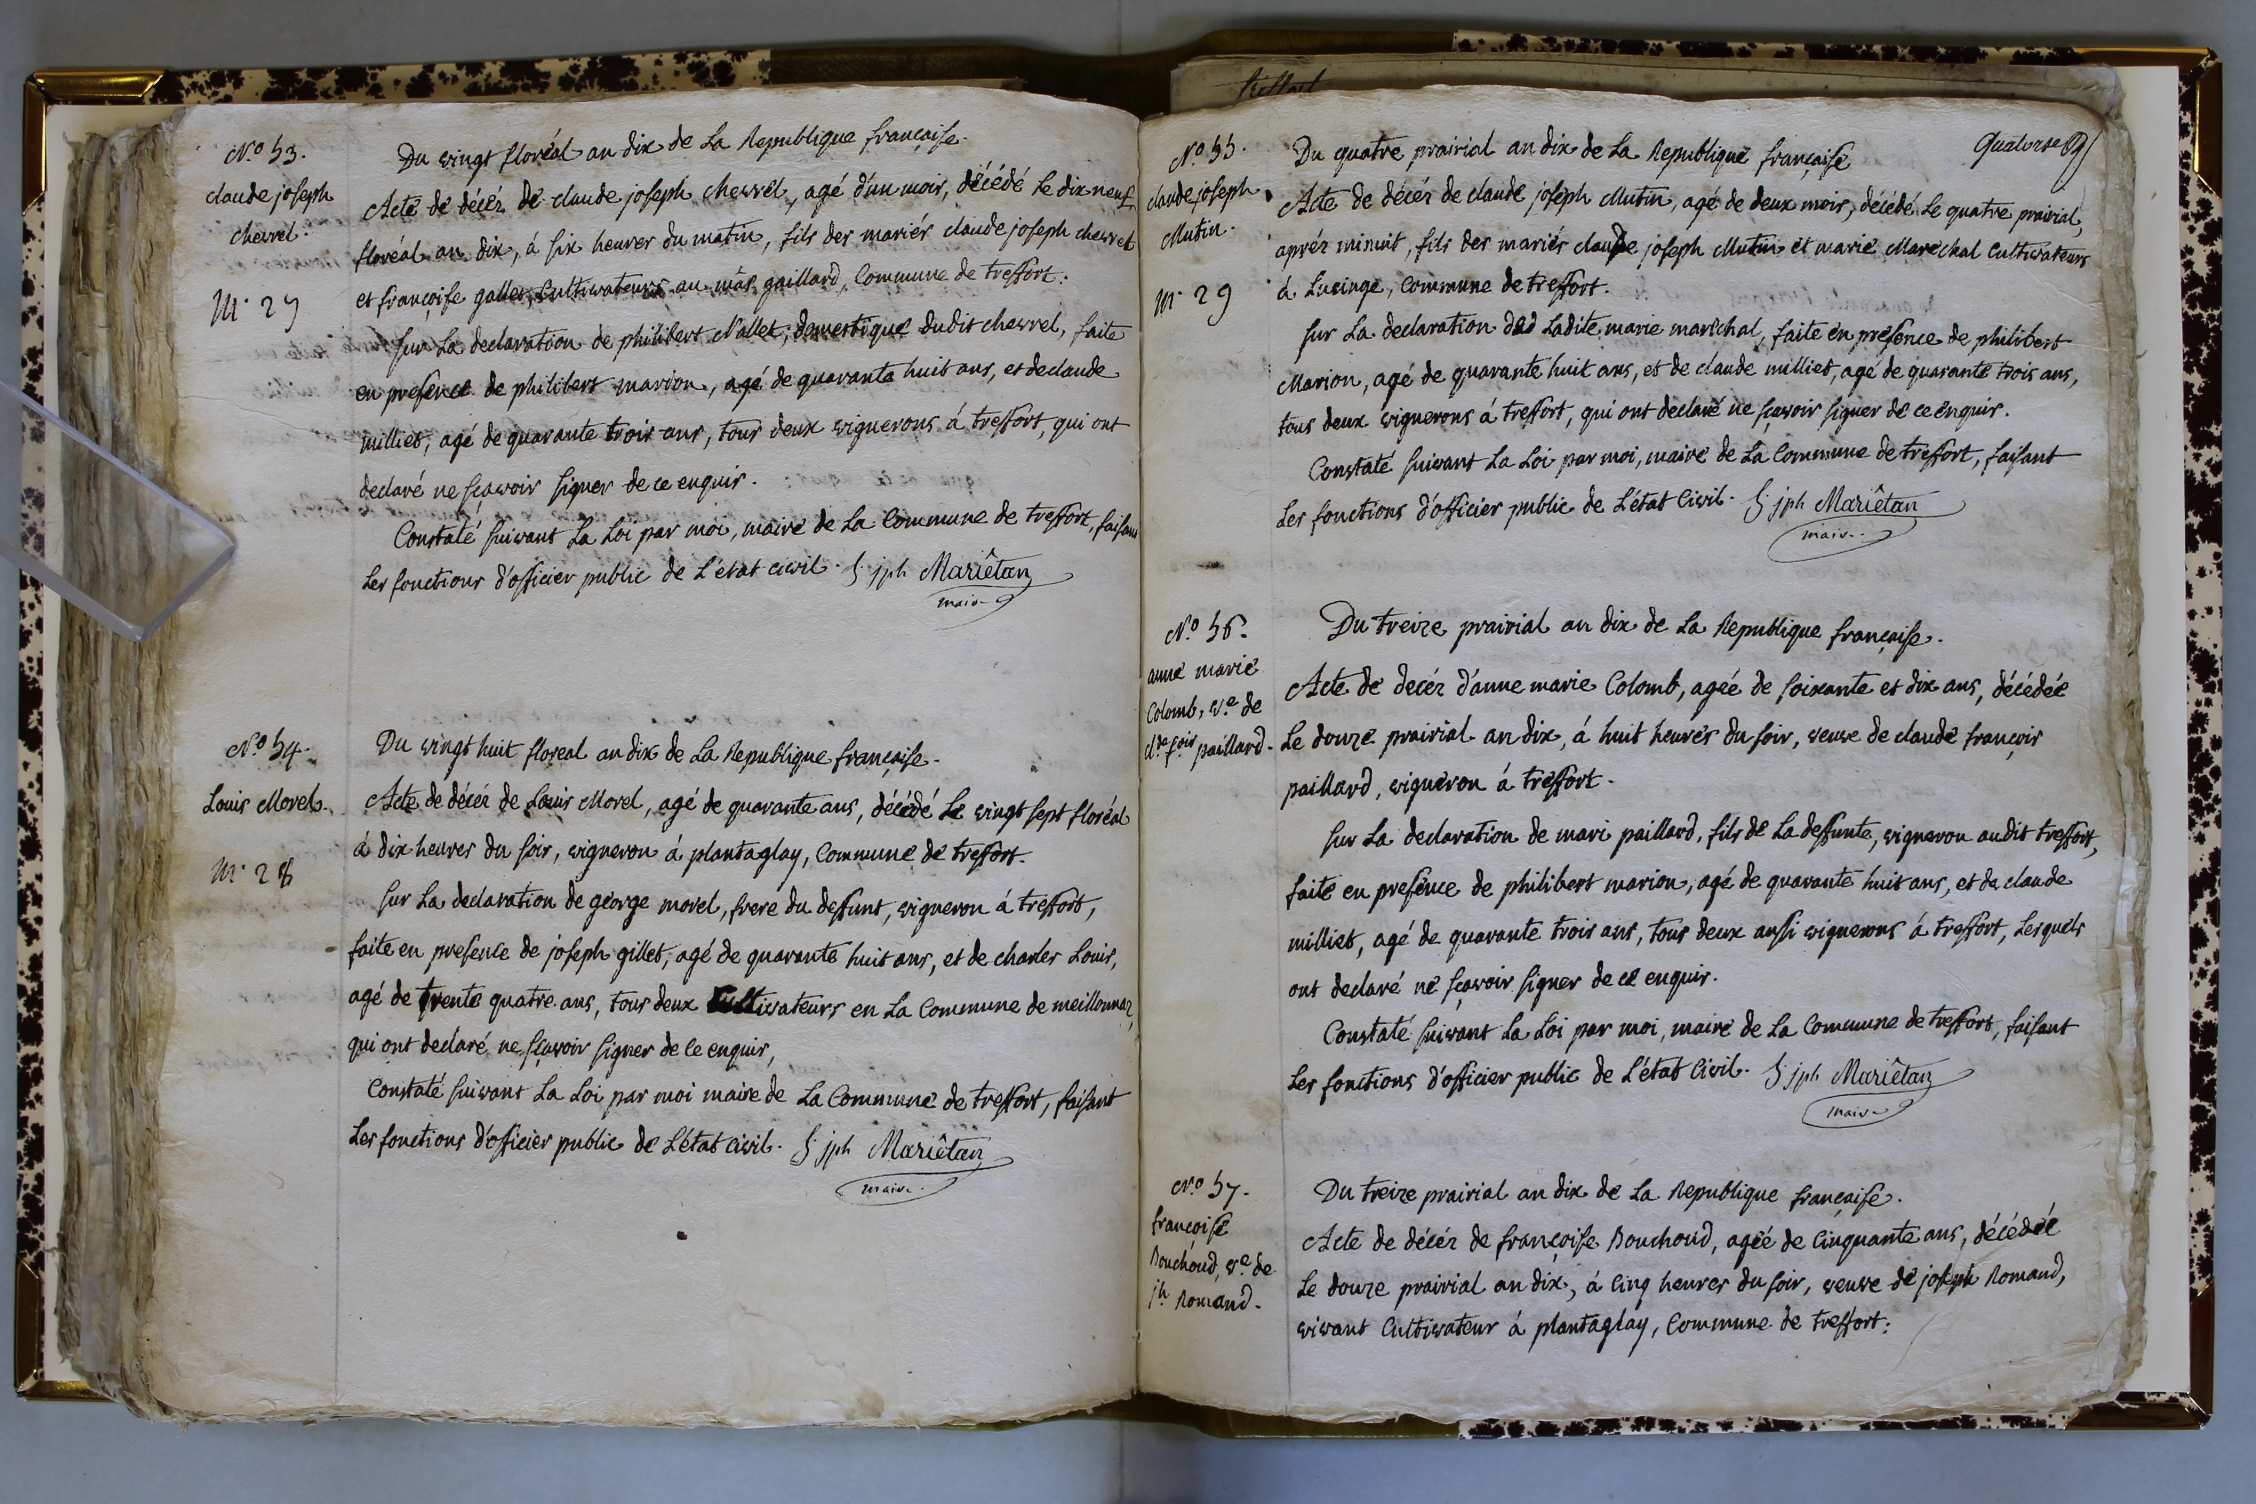 N.o 53.
claude joseph
chevrel.
M. 27
Du vingt floréal an dix de La Republique française.
Acte de décéz de claude joseph chevrel, agé d'un mois, décédé Le dix neuf
floréal an dix, á six heures du matin, fils des mariés claude joseph chevrel
et françoise gallet, Cultivateurs au mâs gaillard, Commune de treffort.
sur La declaration de philibert Nallet, domestique dudit chevrel, faite
en presence de philibert marion, agé de quarante huit ans, et de claude
milliet, agé de quarante trois ans, tous deux vignerons á treffort, qui ont
declaré ne sçavoir signer de ce enquis.
Constaté suivant La Loi par moi, maire de La Commune de treffort, faisant
Les fonctions d'officier public de L'état civil. jph Mariêtan
maire
N.o 54.
Louis Morel.
M. 28
Du vingt huit floreal an dix de La Republique française.
Acte de décéz de Louis Morel, agé de quarante ans, décédé Le vingt sept floréal
á dix heures du soir, vigneron á plantaglay, Commune de treffort.
sur La declaration de george morel, frere du deffunt, vigneron á treffort,
faite en presence de joseph gillet, agé de quarante huit ans, et de charles Louis,
agé de trente quatre ans, tous deux Cultivateurs en La Commune de meillonnaz,
qui ont declaré ne sçavoir signer de ce enquis,
Constaté suivant La Loi par moi maire de La Commune de treffort, faisant
Les fonctions d'officier public de L'état civil. jph Mariêtan
maire
treffort
Quatorse
N.o 55.
claude joseph
Mutin.
M. 29
Du quatre prairial an dix de La Republique française
Acte de décéz de claude joseph Mutin, agé de deux mois, décédé Le quatre prairial,
apréz minuit, fils des mariés claude joseph Mutin et marie Marechal Cultivateurs
á Lucinge, Commune de treffort.
sur La declaration de Ladite marie maréchal, faite en presence de philibert
Marion, agé de quarante huit ans, et de claude milliet, agé de quarante trois ans,
tous deux vignerons á treffort, qui ont declaré ne sçavoir signer de ce enquis.
Constaté suivant La Loi par moi, maire de La Commune de treffort, faisant
Les fonctions d'officier public de L'état Civil. jph Mariêtan
maire
N.o 56.
anne marie
Colomb, v.e de
cl.de f.ois paillard.
Du treize prairial an dix de La Republique française.
Acte de decéz d'anne marie Colomb, agée de soixante et dix ans, décédée
Le douze prairial an dix, á huit heures du soir, veuve de claude françois
paillard, vigneron á treffort.
sur La declaration de mari paillard, fils de La deffunte, vigneron audit treffort,
faite en presence de philibert marion, agé de quarante huit ans, et de claude
milliet, agé de quarante trois ans, tous deux aussi vignerons á treffort, Lesquels
ont declaré ne sçavoir signer de ce enquis.
Constaté suivant La Loi par moi, maire de La Commune de treffort, faisant
Les fonctions d'officier public de L'état Civil. jph Mariêtan
maire
N.o 57.
françoise
Bouchoud, v.e de
j.h Romand.
Du treize prairial an dix de La Republique française.
Acte de décéz de françoise Bouchoud, agée de Cinquante ans, décédée
Le douze prairial an dix, á Cinq heures du soir, veuve de joseph Romand,
vivant Cultivateur á plantaglay, Commune de treffort: